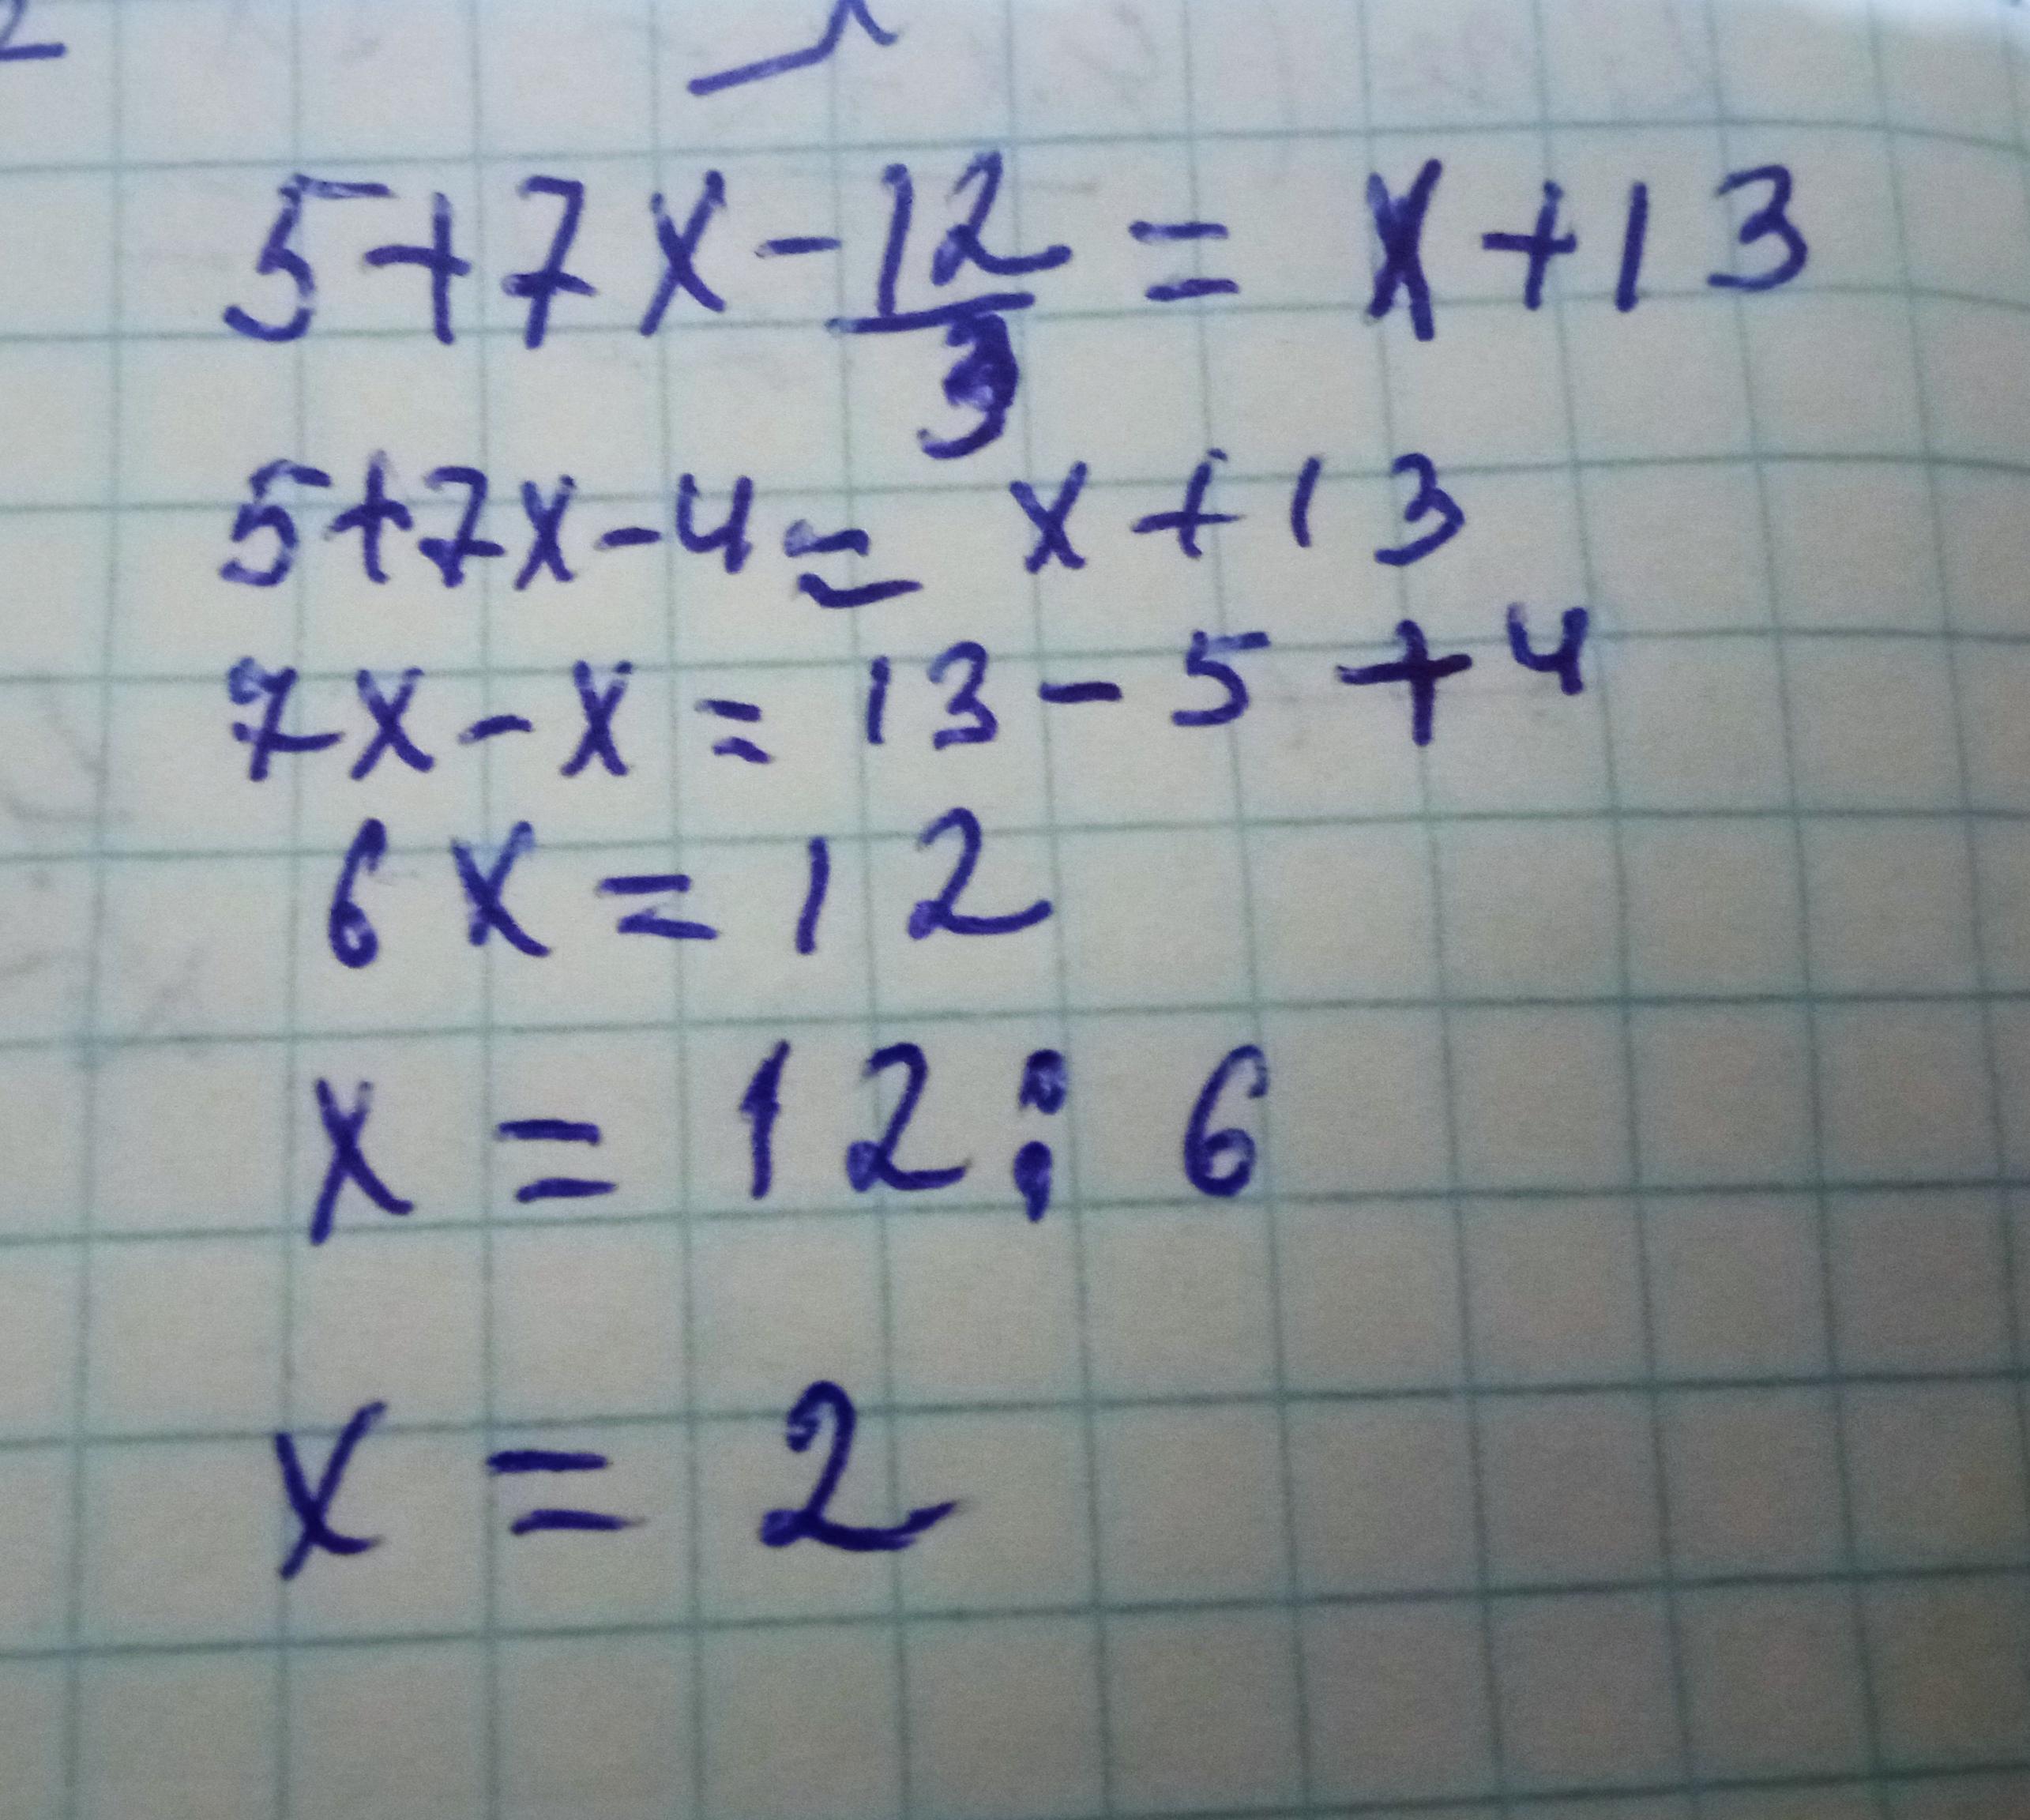 2
5+7x-12/3 = x+13
5+7x-4= x+13
7x-x=13-5+4
6x=12
x=12:6
x=2